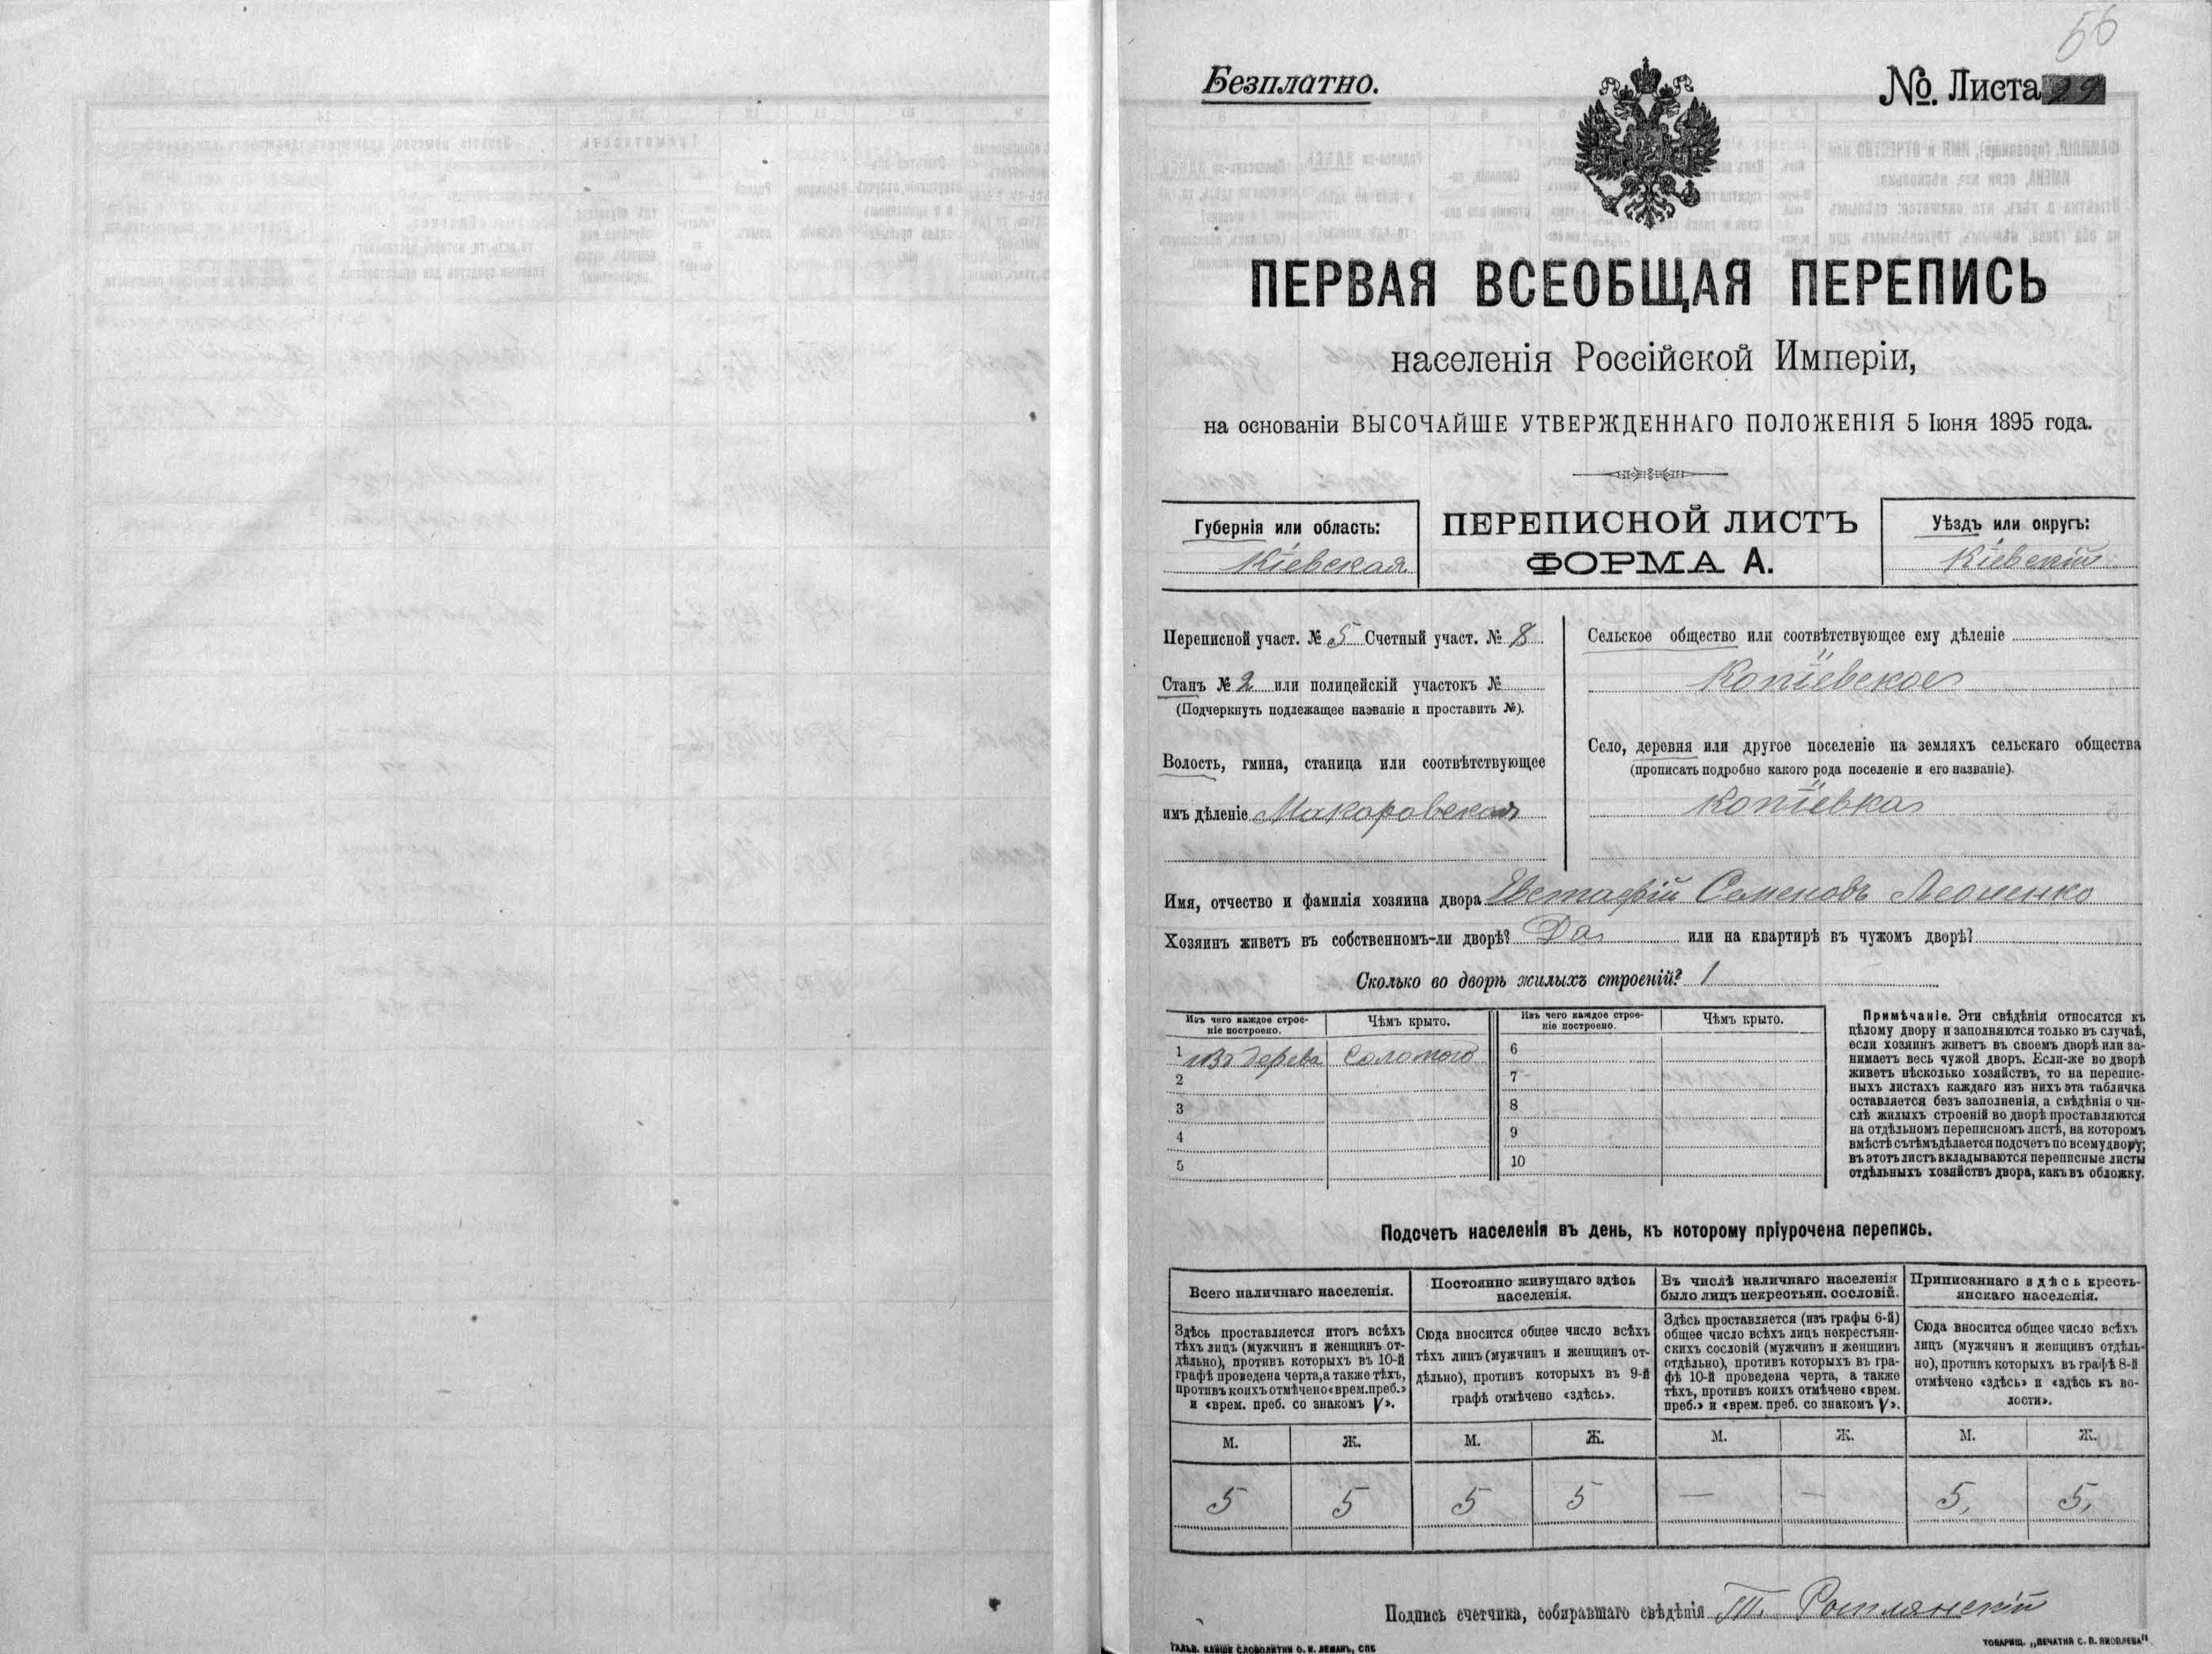 56
Безплатно.
№. Листа 29
ПЕРВАЯ ВСЕОБЩАЯ ПЕРЕПИСЬ
населенія Россійской Имперіи,
на основаніи ВЫСОЧАЙШЕ УТВЕРЖДЕННАГО ПОЛОЖЕНІЯ 5 Іюня 1895 года.
Губернія или область:
Кіевская
ПЕРЕПИСНОЙ ЛИСТЪ
ФОРМА А.
Уѣздъ или округъ:
Кіевскій
Переписной участ. № 5 Счетный участ. № 8
Станъ № 2 или полицейскій участокъ №
(Подчеркнуть подлежащее названіе и проставить №).
Волость, гмина, станица или соотвѣтствующее
имъ дѣленіе Макаровская
Сельское общество или соотвѣтствующее ему дѣленіе
Копіевское
Село, деревня или другое поселеніе на земляхъ сельскаго общества
(прописать подробно какого рода поселеніе и его названіе).
Копіевка
Имя, отчество и фамилія хозяина двора Евстафій Семеновъ Леоненко
Хозяинъ живетъ въ собственномъ-ли дворѣ? Да или на квартирѣ въ чужомъ дворѣ?
Сколько во дворѣ жилыхъ строеній? 1
Изъ чего каждое строе-
ніе построено.
Чѣмъ крыто.
Изъ чего каждое строе-
ніе построено.
Чѣмъ крыто.
1 изъ дерева Соломою 6
2 7
3 8
4 9
5 10
Примѣчаніе. Эти свѣдѣнія относятся къ
цѣлому двору и заполняются только въ случаѣ,
если хозяинъ живетъ въ своемъ дворѣ или за-
нимаетъ весь чужой дворъ. Если-же во дворѣ
живетъ нѣсколько хозяйствъ, то на перепис-
ныхъ листахъ каждаго изъ нихъ эта табличка
оставляется безъ заполненія, а свѣдѣнія о чи-
слѣ жилыхъ строеній во дворѣ проставляются
на отдѣльномъ переписномъ листѣ, на которомъ
вмѣстѣ съ тѣмъ дѣлается подсчетъ по всему двору;
въ этотъ листъ вкладываются переписные листы
отдѣльныхъ хозяйствъ двора, какъ въ обложку.
Подсчетъ населенія въ день, къ которому пріурочена перепись.
Всего наличнаго населенія.
Здѣсь проставляется итогъ всѣхъ
тѣхъ лицъ (мужчинъ и женщинъ от-
дѣльно), противъ которыхъ въ 10-й
графѣ проведена черта, а также тѣхъ,
противъ коихъ отмѣчено «врем. преб.»
и «врем. преб. со знакомъ V».
Постоянно живущаго здѣсь
населенія.
Сюда вносится общее число всѣхъ
тѣхъ лицъ (мужчинъ и женщинъ от-
дѣльно), противъ которыхъ въ 9-й
графѣ отмѣчено «здѣсь».
Въ числѣ наличнаго населенія
было лицъ некрестьян. сословій.
Здѣсь проставляется (изъ графы 6-й)
общее число всѣхъ лицъ некрестьян-
скихъ сословій (мужчинъ и женщинъ
отдѣльно), противъ которыхъ въ гра-
фѣ 10-й проведена черта, а также
тѣхъ, противъ коихъ отмѣчено «врем.
преб.» и «врем. преб. со знакомъ V».
Приписаннаго здѣсь кресть-
янскаго населенія.
Сюда вносится общее число всѣхъ
лицъ (мужчинъ и женщинъ отдѣль-
но), противъ которыхъ въ графѣ 8-й
отмѣчено «здѣсь» и «здѣсь къ во-
лости».
М. Ж. М. Ж. М. Ж. М. Ж.
5 5 5 5 — — 5, 5,
Подпись счетчика, собиравшаго свѣдѣнія
ГАЛЬВ. КЛИШЕ СЛОВОЛИТНИ О. И. ЛЕМАНЪ, СПБ
ТОВАРИЩ. „ПЕЧАТНЯ С. П. ЯКОВЛЕВА"